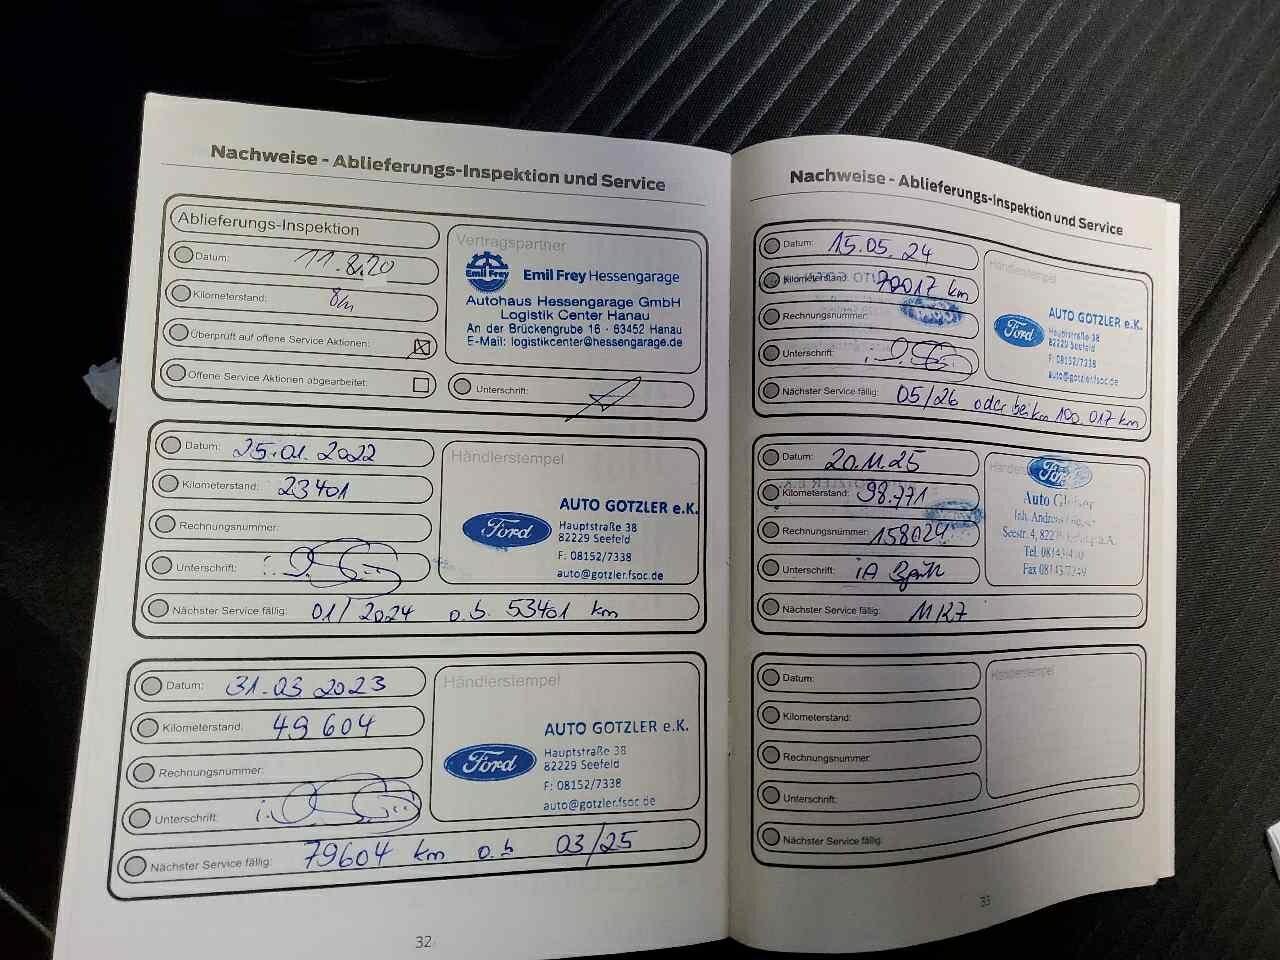 Nachweise - Ablieferungs-Inspektion und Service
Ablieferungs-Inspektion
Datum: 11.8.20
Kilometerstand: 8km
Überprüft auf offene Service Aktionen:
Offene Service Aktionen abgearbeitet:
Vertragspartner
Emil Frey
Emil Frey Hessengarage
Autohaus Hessengarage GmbH
Logistik Center Hanau
An der Brückengrube 16 · 63452 Hanau
E-Mail: logistikcenter@hessengarage.de
Unterschrift:
Datum: 25.01.2022
Kilometerstand: 23401
Rechnungsnummer:
Unterschrift:
Nächster Service fällig: 01/2024 o.b. 53401 km
Händlerstempel
Ford
AUTO GOTZLER e.K.
Hauptstraße 38
82229 Seefeld
F: 08152/7338
auto@gotzler.fsoc.de
Datum: 31.03 2023
Kilometerstand: 49 604
Rechnungsnummer:
Unterschrift:
Nächster Service fällig: 79604 km o.b 03/25
Händlerstempel
Ford
AUTO GOTZLER e.K.
Hauptstraße 38
82229 Seefeld
F: 08152/7338
auto@gotzler.fsoc.de
32
Nachweise - Ablieferungs-Inspektion und Service
Datum: 15.05.24
Kilometerstand: 70017 km
Rechnungsnummer:
Unterschrift:
Nächster Service fällig: 05/26 oder bei km 100.017 km
Händlerstempel
Ford
AUTO GOTZLER e.K.
Hauptstraße 38
82229 Seefeld
F: 08152/7338
auto@gotzler.fsoc.de
Datum: 20.11.25
Kilometerstand: 98.771
Rechnungsnummer: 158024
Unterschrift: iA
Nächster Service fällig: 11/27
Ford
Auto
Inh. Andreas
Seestr. 4,
Tel.
Fax 08143/7249
Datum:
Kilometerstand:
Rechnungsnummer:
Unterschrift:
Nächster Service fällig:
Händlerstempel
33